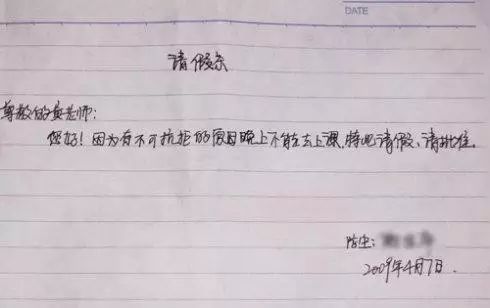 DATE
请假条
尊敬的黄老师:
您好!因为有不可抗拒的原因晚上不能去上课,特此请假、请批准.
陪宝:
2009年4月7日.